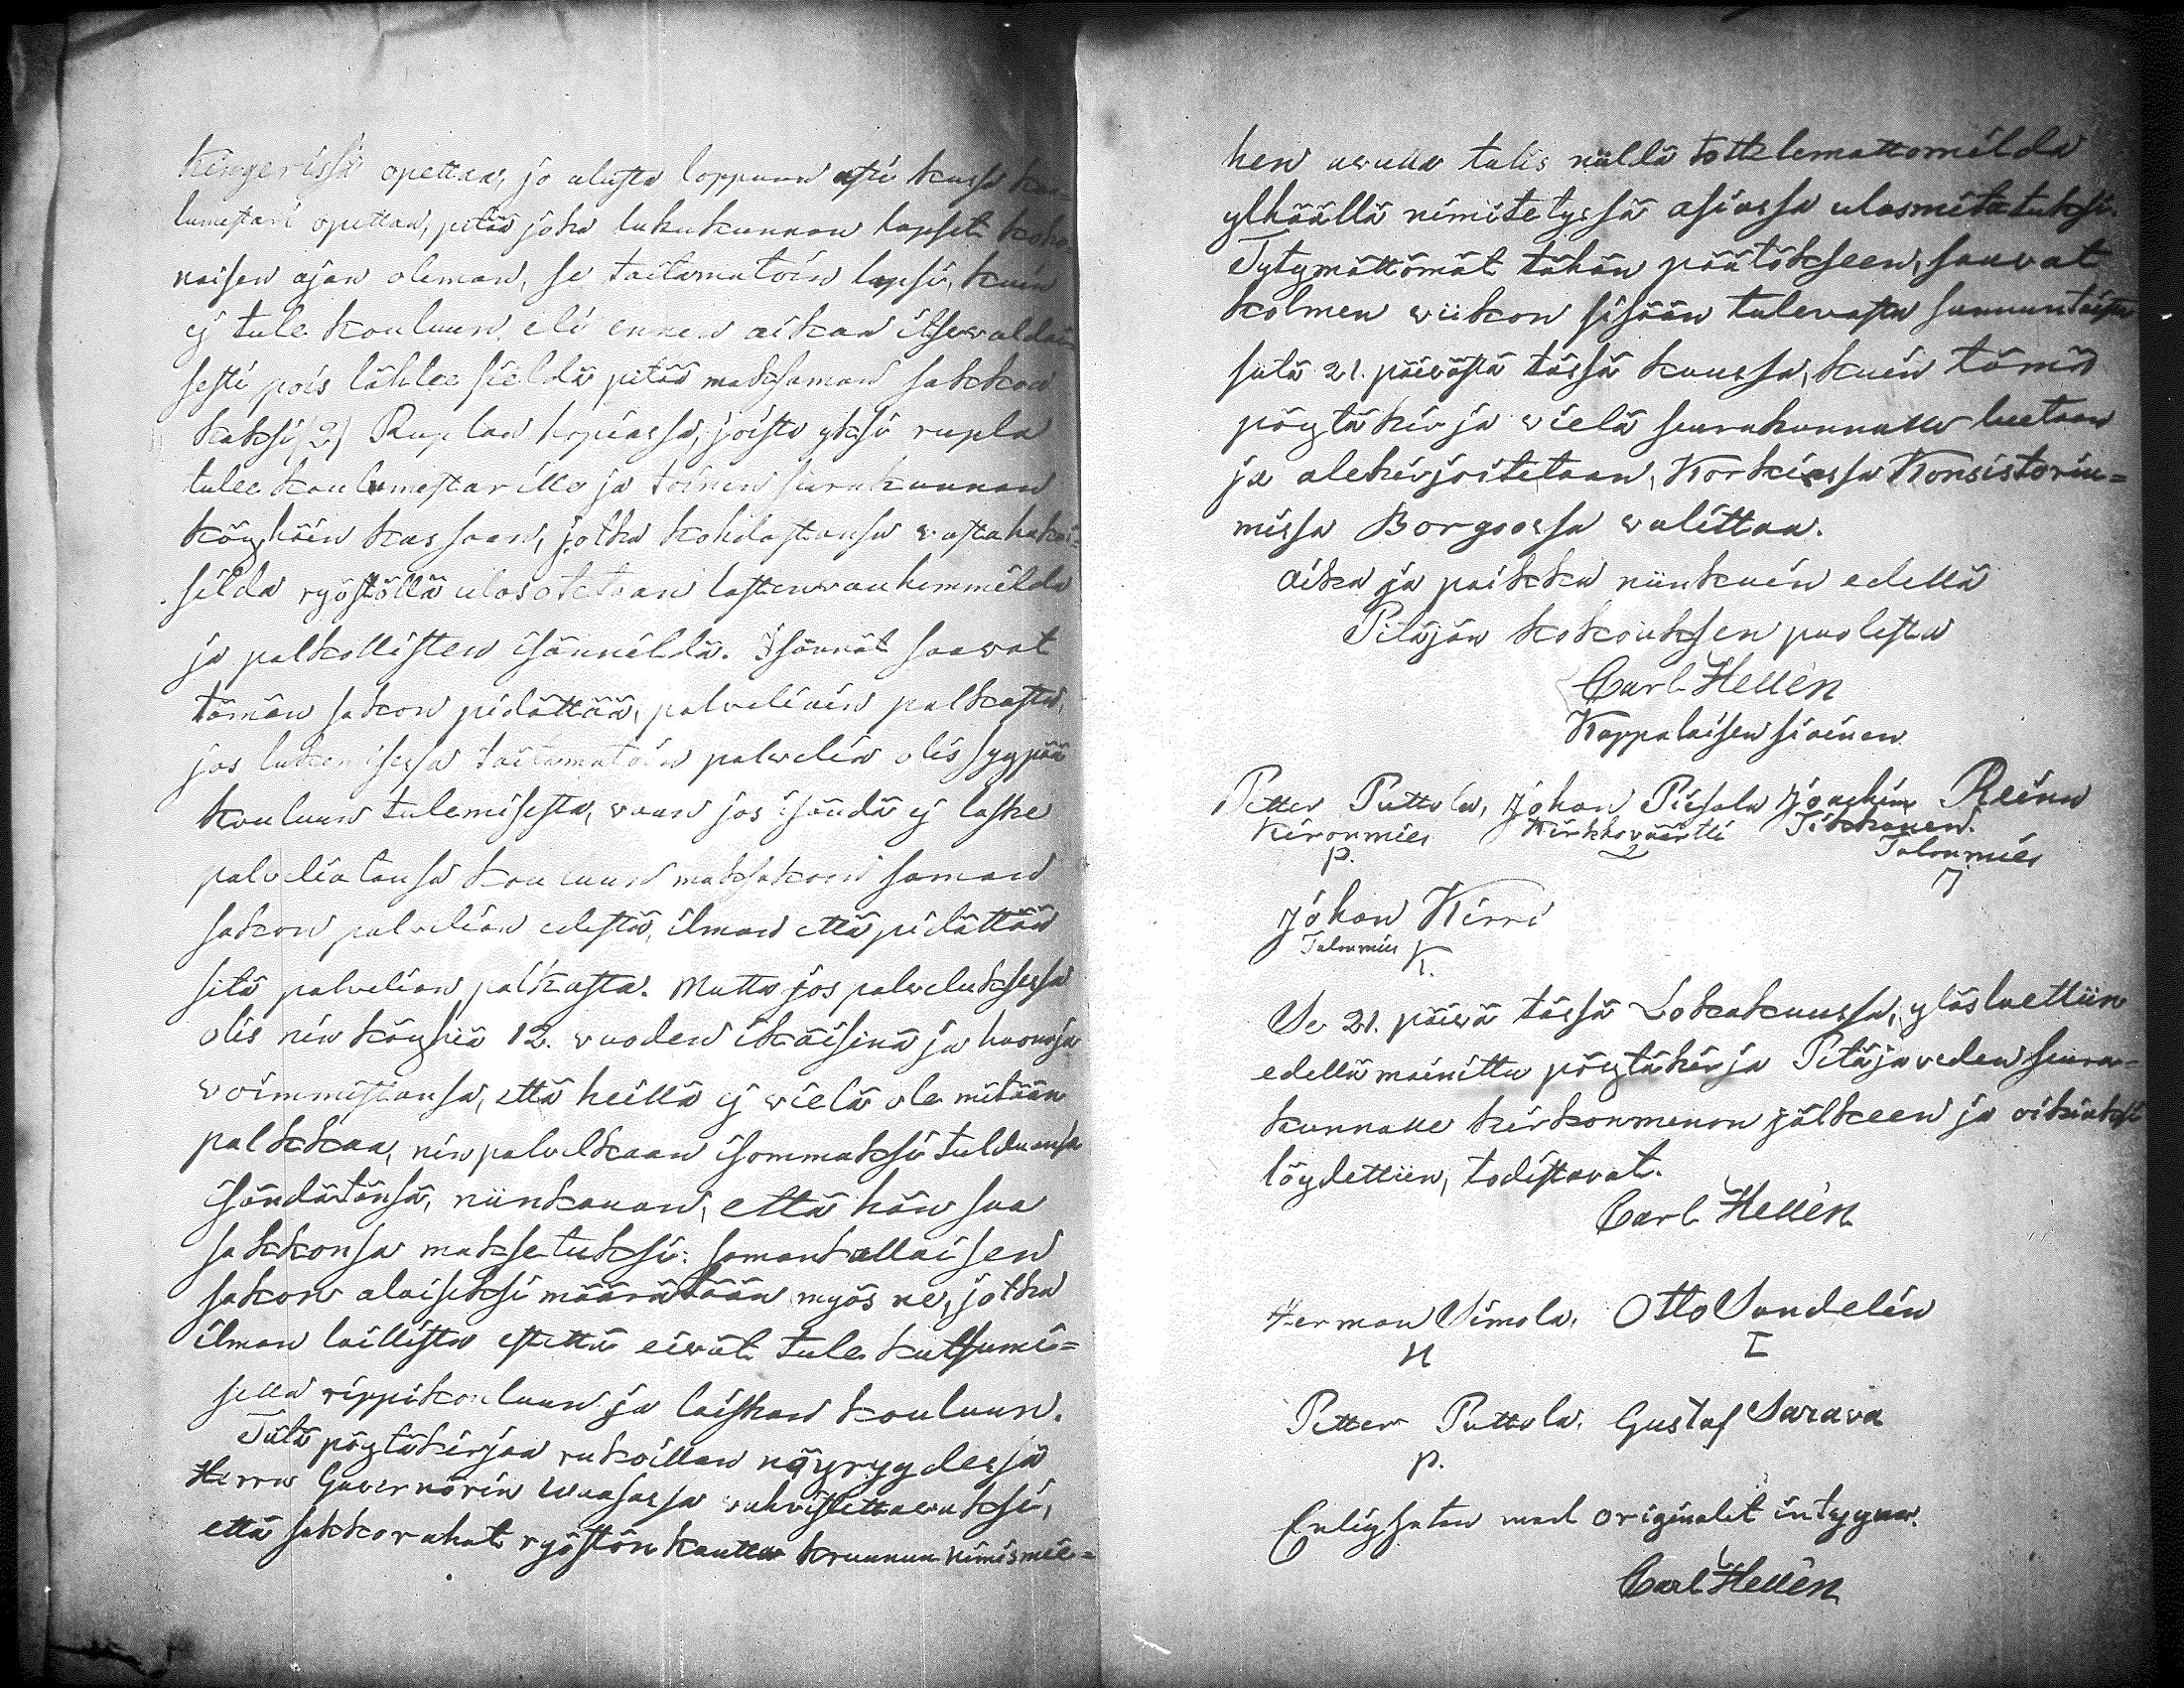 Kingerissä opettaa, jo alusta loppuun asti kussa kou-
lumestari opettaa, pitää joka lukukunnan lapset koko-
naisen ajan oleman, se taitamatoin lapsi, kuin
ej tule kouluun eli ennen aikaa itsewaldai-
sesti pois lähtee sieldä pitää maksaman sakkoa
kaksi 2) Ruplaa hopiassa, joista yksi rupla
tulee koulumestarille ja toinen seurakunnan
köyhäin kassaan, jotka kohdastansa vastahakoi-
silda ryöstöllä ulosotetaan lasten vanhemmilda
ja palkollisten isännildä. Isännät saawat
tämän sakon pidättää, palveliain palkasta,
jos lukemisessa taitamatoin palvelia olis syypää
kouluun tulemisesta, vaan jos isändä ej laske
palveliatansa kouluun maksakoon saman
sakon palvelian edestä, ilman että pidättää
sitä palvelian palkasta. Mutta jos palveluksessa
olis niin köyhiä 12. vuoden ikäisinä ja huonoja
woimmistansa, että heillä ej wielä ole mitään
palkkaa, niin palvelkaan isommaksi tulduansa
isändätänsä, niinkauan, että hän saa
sakkonsa maksetuksi: samankallaisen
sakon alaiseksi määrätään myös ne, jotka
ilman laillista estettä eivät tule kutsumi=
sella rippikouluun ja laiskan kouluun.
Tätä pöytäkirjaa rukoillaan nöyryydessä
Herra Guvernörin Waasassa vahvistettavaksi,
että sakkorahat ryöstön kautta kruunun nimismie=
hen avulla tulis näildä tottelemattomilda
ylhäällä nimitetyssä asiassa ulosmitatuksi.
Tytymättömät tähän päätökseen, saavat
kolmen wiikon sisään tulevasta sunnuntaista
siitä 21. päivästä tässä kuussa, kuin tämä
pöytäkirja wielä seurakunnalle luetaan
ja alekirjoitetaan, Korkiassa Konsistoriu=
missa Borgoossa walittaa.
Aika ja paikka niinkuin edellä
Pitäjän kokouksen puolesta
Carl Hellén
Kappalaisen siainen
Petter Puttola, Johan Piesala Joachim Reinu
Kironmies Kirkkoväärtti Tikkanen.
P. Talonmies
Johan Kirri
Talonmies K.
Se 21. päivä tässä Lokakuussa, ylösluettiin
edellämainittu pöytäkirja Pitäjäveden seura=
kunnalle kirkonmenon jälkeen ja oikiaksi
löydettiin, todistavat.
Carl Hellén
Herman Simola. Otto Sandelin
H I
Petter Puttola. Gustaf Sarava
P.
Enligheten med originalet intygar.
Carl Hellén